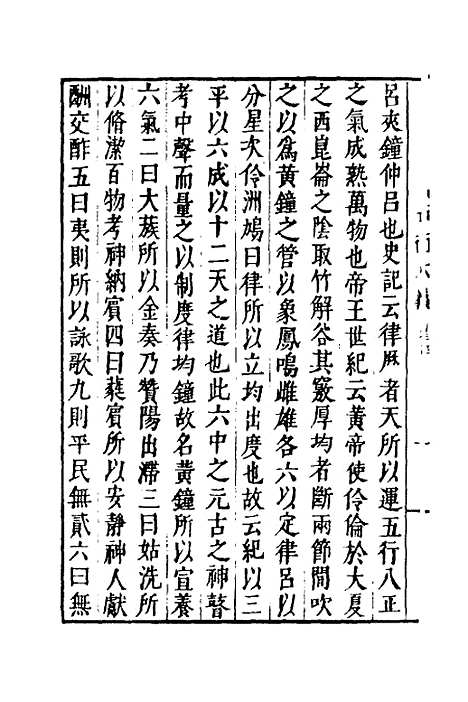 呂夾鐘仲呂也史記云律厯者天所以運五行八正
之氣成熟萬物也帝王世紀云黃帝使伶倫於大夏
之西崑崙之陰取竹解谷其竅厚均者斷兩節間吹
之以爲黃鐘之管以象鳳鳴雌雄各六以定律呂以
分星次伶洲鳩曰律所以立均出度也故云紀以三
平以六成以十二天之道也此六中之元古之神瞽
考中聲而量之以制度律均鐘故名黃鐘所以宣養
六氣二曰大蔟所以金奏乃贊陽出滯三曰姑洗所
以脩潔百物考神納賔四曰蕤賔所以安靜神人獻
酬交酢五曰夷則所以詠歌九則平民無貳六曰無